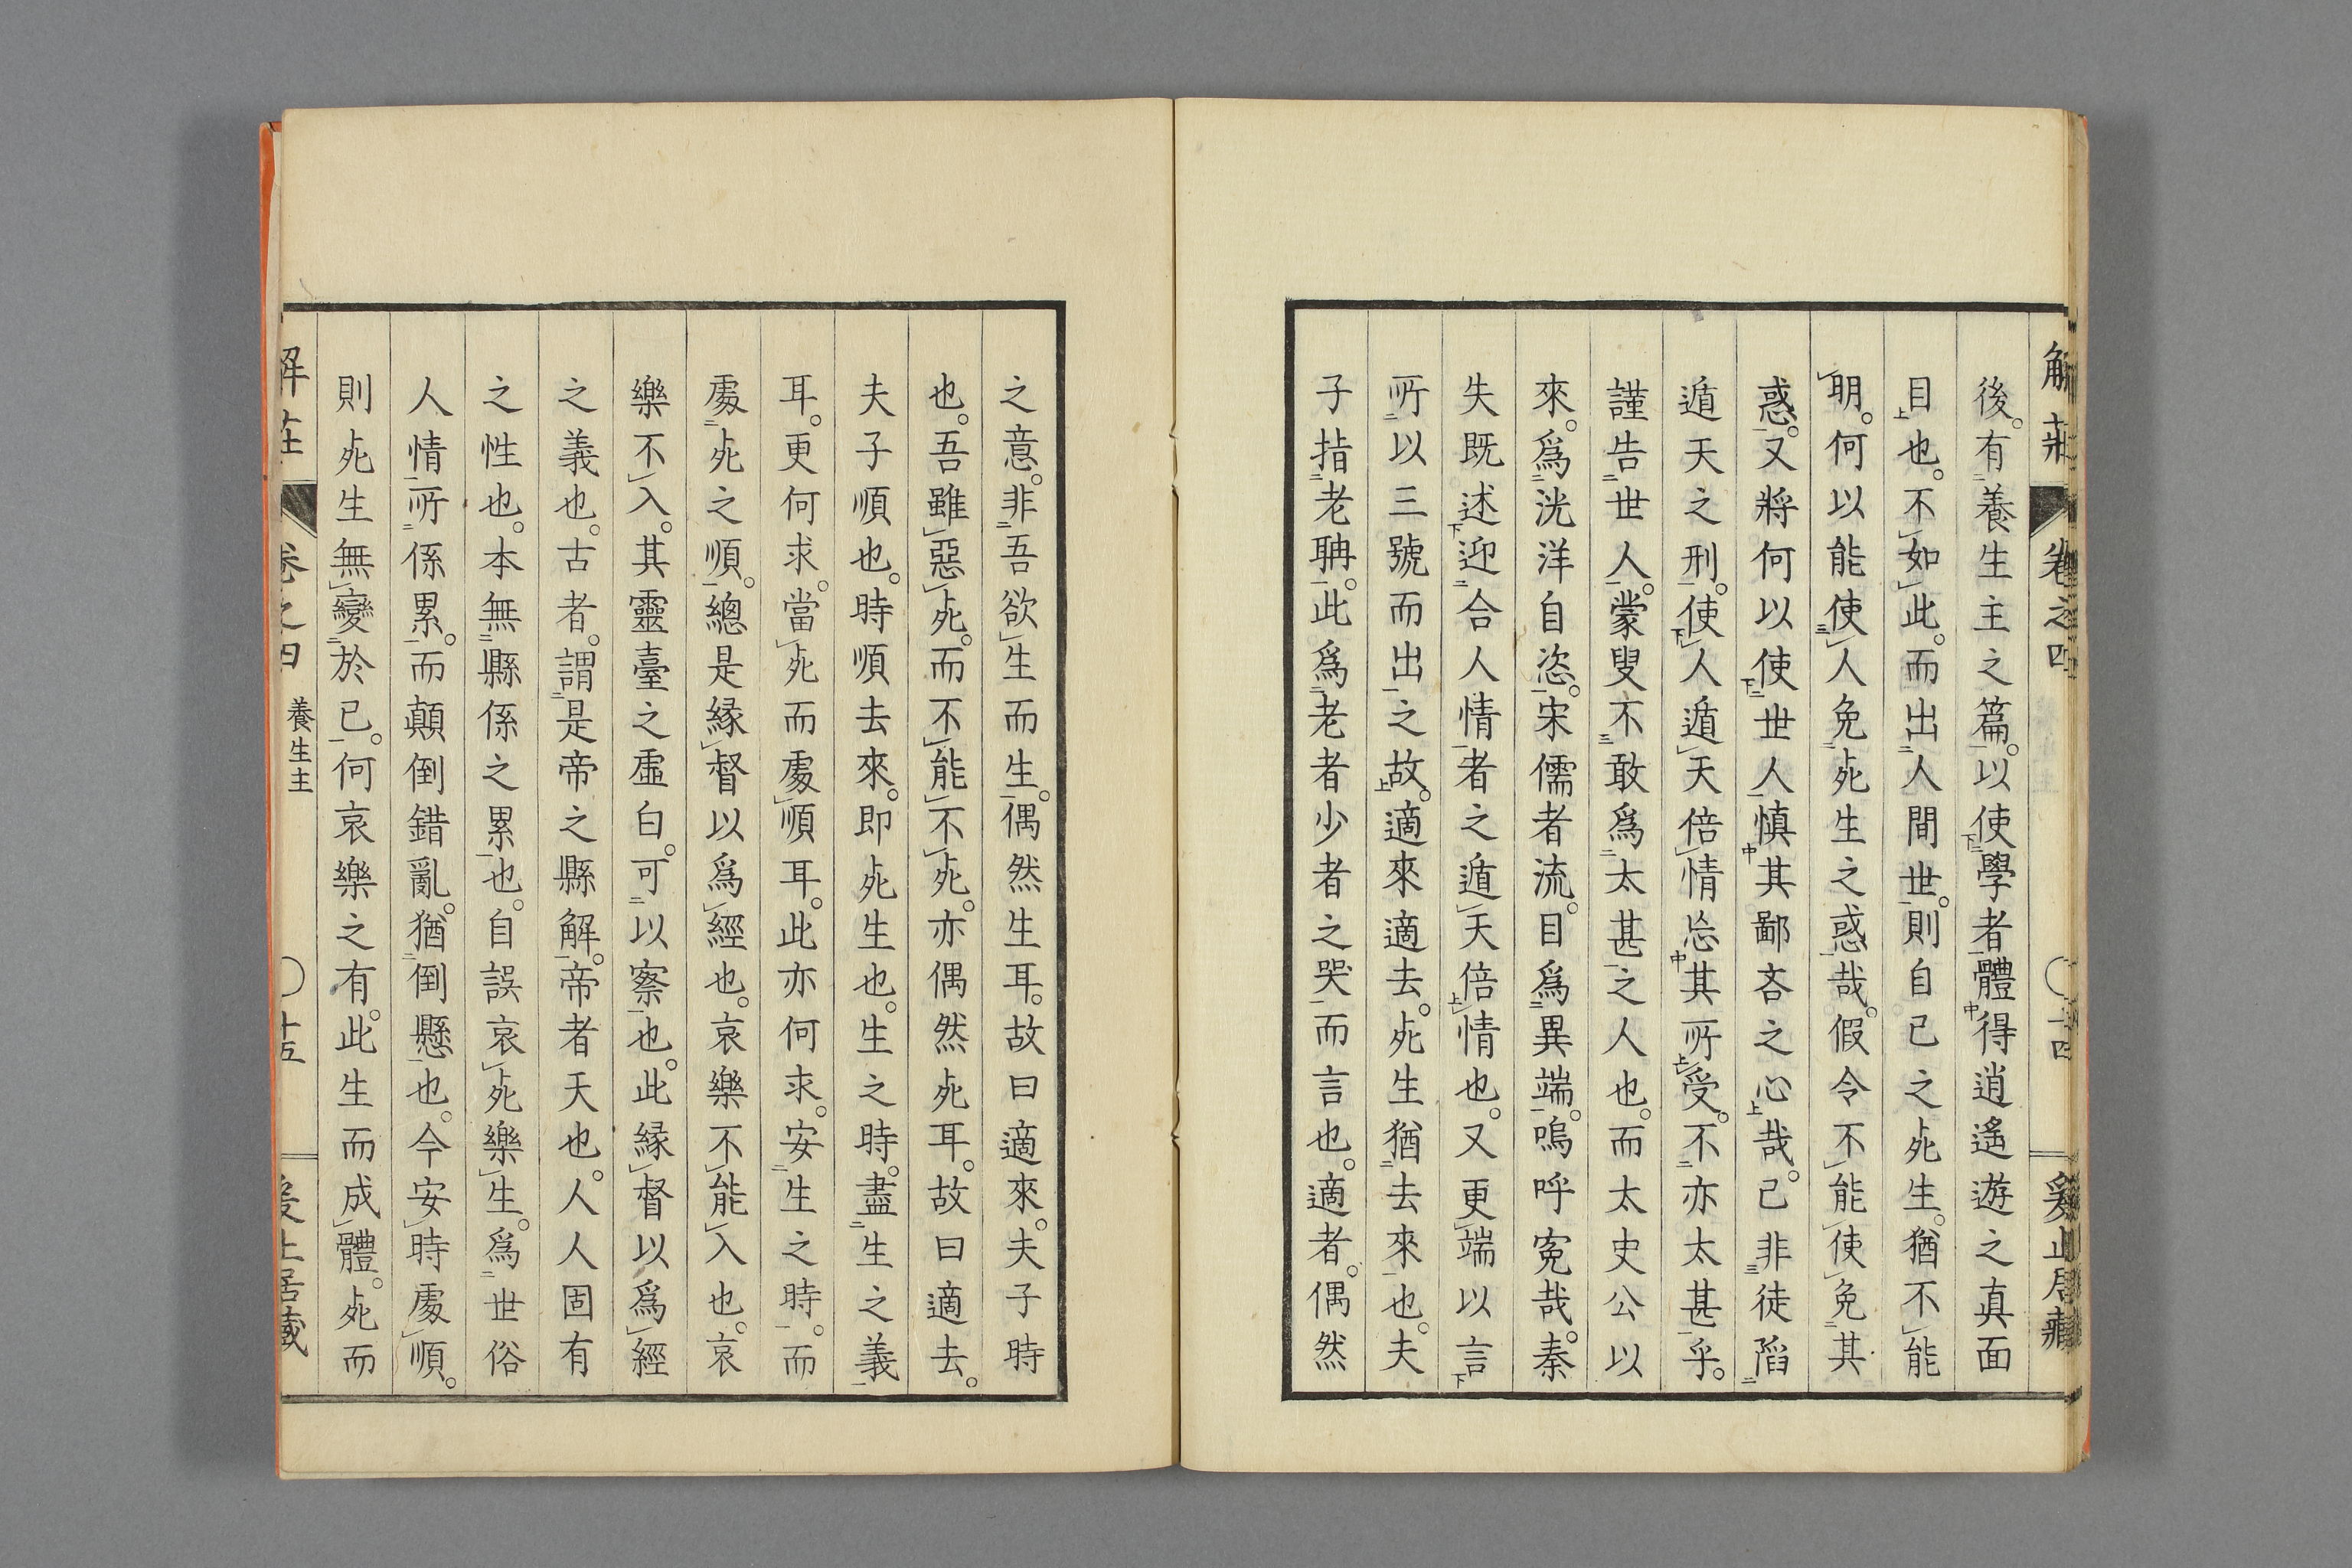 解莊 卷之四 十四 爰止居藏
後。有養生主之篇。以使學者體得逍遙遊之真面
目也。不如此。而出人間世。則自己之死生。猶不能
明。何以能使人免死生之惑哉。假令不能使免其
惑。又將何以使世人慎其鄙吝之心哉。已非徒陷
遁天之刑。使人遁天倍情忘其所受。不亦太甚乎。
謹告世人。蒙叟不敢為太甚之人也。而太史公以
來。為洸洋自恣。宋儒者流。目為異端。嗚呼寃哉。秦
失既述迎合人情者之遁天倍情也。又更端以言
所以三號而出之故。適來適去。死生猶去來也。夫
子指老聃。此為老者少者之哭而言也。適者。偶然
之意。非吾欲生而生。偶然生耳。故曰適來。夫子時
也。吾雖惡死。而不能不死。亦偶然死耳。故曰適去。
夫子順也。時順去來。即死生也。生之時。盡生之義
耳。更何求。當死而處順耳。此亦何求。安生之時。而
處死之順。總是緣督以為經也。哀樂不能入也。哀
樂不入。其靈臺之虛白。可以察也。此緣督以為經
之義也。古者。謂是帝之縣解。帝者天也。人人固有
之性也。本無縣係之累也。自誤哀死樂生。為世俗
人情所係累。而顛倒錯亂。猶倒懸也。今安時處順。
則死生無變於已。何哀樂之有。此生而成體。死而
解莊 卷之四 養生主 十五 爰止居藏